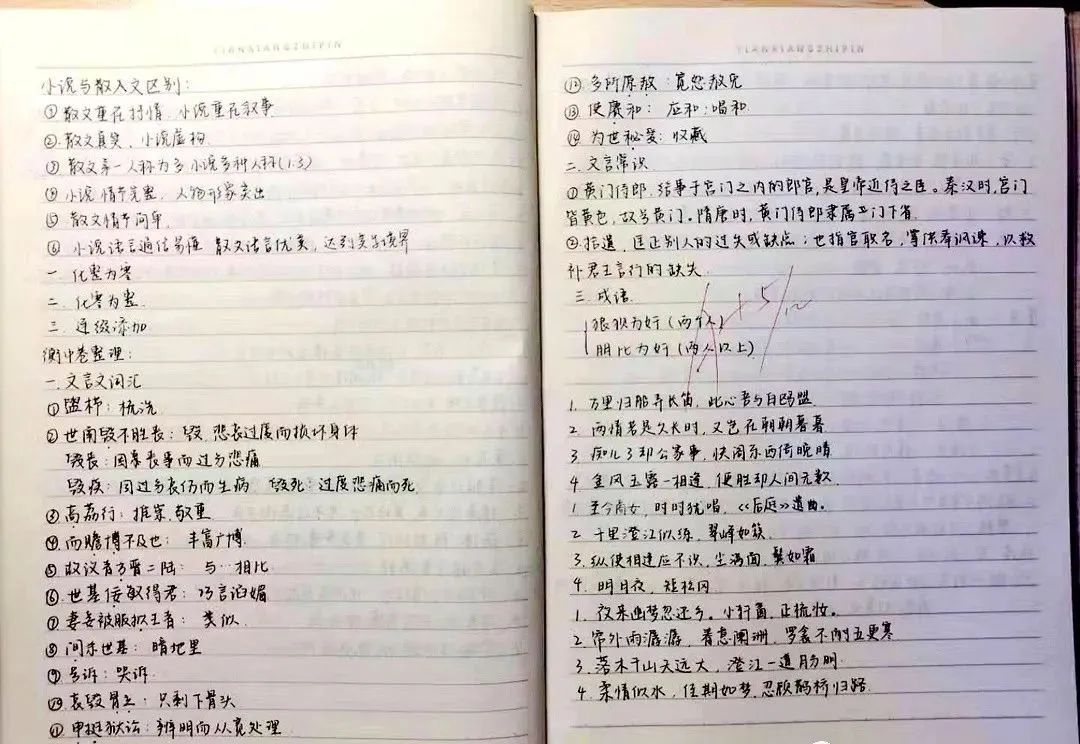 TIANXIANGZHIPIN
小说与散入文区别:
① 散文重在抒情,小说重在叙事
② 散文真实,小说虚构
③ 散文第一人称为多 小说多种人称(1.3)
④ 小说情节完整,人物形象突出
⑤ 散文情节简单
⑥ 小说语言通俗易懂 散文语言优美,达到实字境界
一. 化整为零
二. 化零为整
三. 逐级添加
衡中卷整理:
一. 文言文词汇
① 盥栉:梳洗
② 世南毁不胜丧:毁 悲哀过度而损坏身体
毁丧:因亲丧事而过分悲痛
毁疾:因过分哀伤而生病 毁死:过度悲痛而死
③ 高荔行:推崇,敬重
④ 而赡博不及也:丰富广博
⑤ 故议者方晋二陆:与…相比
⑥ 世基佞敏得君:巧言谄媚
⑦ 妻妾被服拟王者:类似
⑧ 间求世基:暗地里
⑨ 号诉:哭诉
⑩ 哀毁骨立:只剩下骨头
⑪ 申挺狱讼:辨明而从宽处理
TIANXIANGZHIPIN
⑫ 多所原赦:宽恕赦免
⑬ 使赓和:应和;唱和
⑭ 为世秘爱:收藏
二. 文言常识
① 黄门侍郎,给事于宫门之内的郎官,是皇帝近侍之臣。秦汉时,宫门
皆黄色,故号黄门。隋唐时,黄门侍郎隶属于门下省.
② 拾遗,匡正别人的过失或缺点;也指官职名,掌供奉讽谏,以救
补君王言行的缺失
三. 成语
狼狈为奸(两个人)
朋比为奸(两人以上)
1. 万里归船弄长笛,此心吾与白鸥盟
2. 两情若是久长时,又岂在朝朝暮暮
3. 痴儿了却公家事,快阁东西倚晚晴
4. 金风玉露一相逢,便胜却人间无数
1. 至今商女,时时犹唱,《后庭》遗曲。
2. 千里澄江似练,翠峰如簇
3. 纵使相逢应不识,尘满面,鬓如霜
4. 明月夜,短松冈
1. 夜来幽梦忽还乡。小轩窗,正梳妆。
2. 帘外雨潺潺,春意阑珊,罗衾不耐五更寒
3. 落木千山天远大,澄江一道月分明
4. 柔情似水,佳期如梦,忍顾鹊桥归路